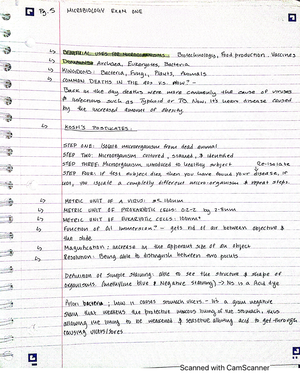 Pg. 5 MICROBIOLOGY EXAM ONE
BENEFICIAL USES FOR MICROORGANISMS: Biotechnology, Food production, Vaccines
DOMAINS: Archaea, Eukaryotes, Bacteria
KINGDOMS: Bacteria, Fungi, Plants, Animals
COMMON DEATHS IN THE 20th VS. Now" -
Back in the day deaths were more commonly the cause of viruses
& infections such as Typhoid or TB. Now, it's heart disease caused
by the increased amount of obesity.
KOCH'S POSTULATES:
STEP ONE: Isolate microorganism from dead animal
STEP TWO: Microorganism cultured, stained, & identified
STEP THREE: Microorganism introduced to healthy subject Re-isolate
STEP FOUR: If test subject dies, then you have found your disease, if
not, re-isolate a completely different micro-organism & repeat steps.
METRIC UNIT OF A VIRUS:
METRIC UNIT OF PROKARYOTIC CELLS: by 2-8um
METRIC UNIT OF EUKARYOTIC CELLS:
Function of Oil Immersion" - gets rid of air between objective &
the slide.
Magnification: increase in the apparent size of an object
Resolution: Being able to distinguish between two points
Definition of simple staining: able to see the structure & shape of
organisms. (methylene blue & Negative staining) -> NS is a Acid dye
bacteria; how it causes stomach ulcers - it's a gram negative
that weakens the protective mucous lining of the stomach, thus
allowing the lining to be weakened & sensitive allowing acid to get through
causing ulcers/sores.
Scanned with CamScanner